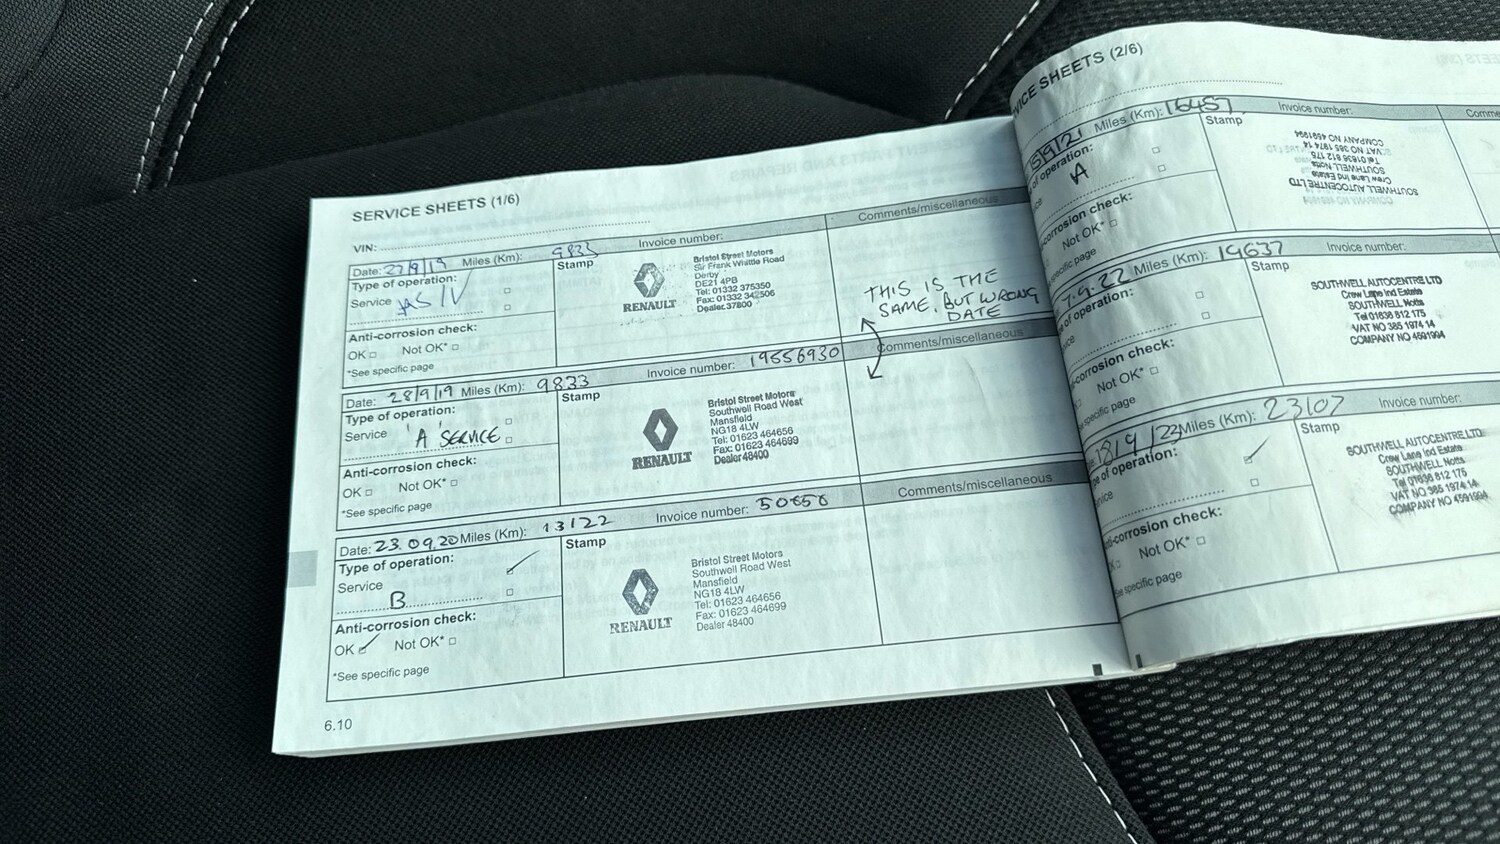 SERVICE SHEETS (1/6)
VIN:
Date: 27/9/19 Miles (Km): 9833 Invoice number:
Comments/miscellaneous
Type of operation:
Service
Anti-corrosion check:
OK Not OK*
*See specific page
Stamp
RENAULT
Bristol Street Motors
Sir Frank Whittle Road
Derby
DE21 4PB
Tel: 01332 375350
Fax: 01332 342506
Dealer 37800
THIS IS THE
SAME, BUT WRONG
DATE
Date: 28/9/19 Miles (Km): 9833 Invoice number: 19556930
Comments/miscellaneous
Type of operation:
Service 'A' SERVICE
Anti-corrosion check:
OK Not OK*
*See specific page
Stamp
RENAULT
Bristol Street Motors
Southwell Road West
Mansfield
NG18 4LW
Tel: 01623 464656
Fax: 01623 464699
Dealer 48400
Date: 23.09.20 Miles (Km): 13122 Invoice number: 50656
Comments/miscellaneous
Type of operation:
Service
B
Anti-corrosion check:
OK Not OK*
*See specific page
Stamp
RENAULT
Bristol Street Motors
Southwell Road West
Mansfield
NG18 4LW
Tel: 01623 464656
Fax: 01623 464699
Dealer 48400
6.10
VICE SHEETS (2/6)
Miles (Km): 16457 Invoice number:
Comme
of operation:
A
corrosion check:
Not OK*
specific page
Stamp
SOUTHWELL AUTOCENTRE LTD
Crew Lane Ind Estate
SOUTHWELL Notts
Tel 01636 812 175
VAT NO 385 1974 14
COMPANY NO 4591994
9.22 Miles (Km): 19637 Invoice number:
of operation:
corrosion check:
Not OK*
specific page
Stamp
SOUTHWELL AUTOCENTRE LTD
Crew Lane Ind Estate
SOUTHWELL Notts
Tel 01636 812 175
VAT NO 385 1974 14
COMPANY NO 4591994
18/9/23 Miles (Km): 23107 Invoice number:
of operation:
corrosion check:
Not OK*
See specific page
Stamp
SOUTHWELL AUTOCENTRE LTD
Crew Lane Ind Estate
SOUTHWELL Notts
Tel 01636 812 175
VAT NO 385 1974 14
COMPANY NO 4591994